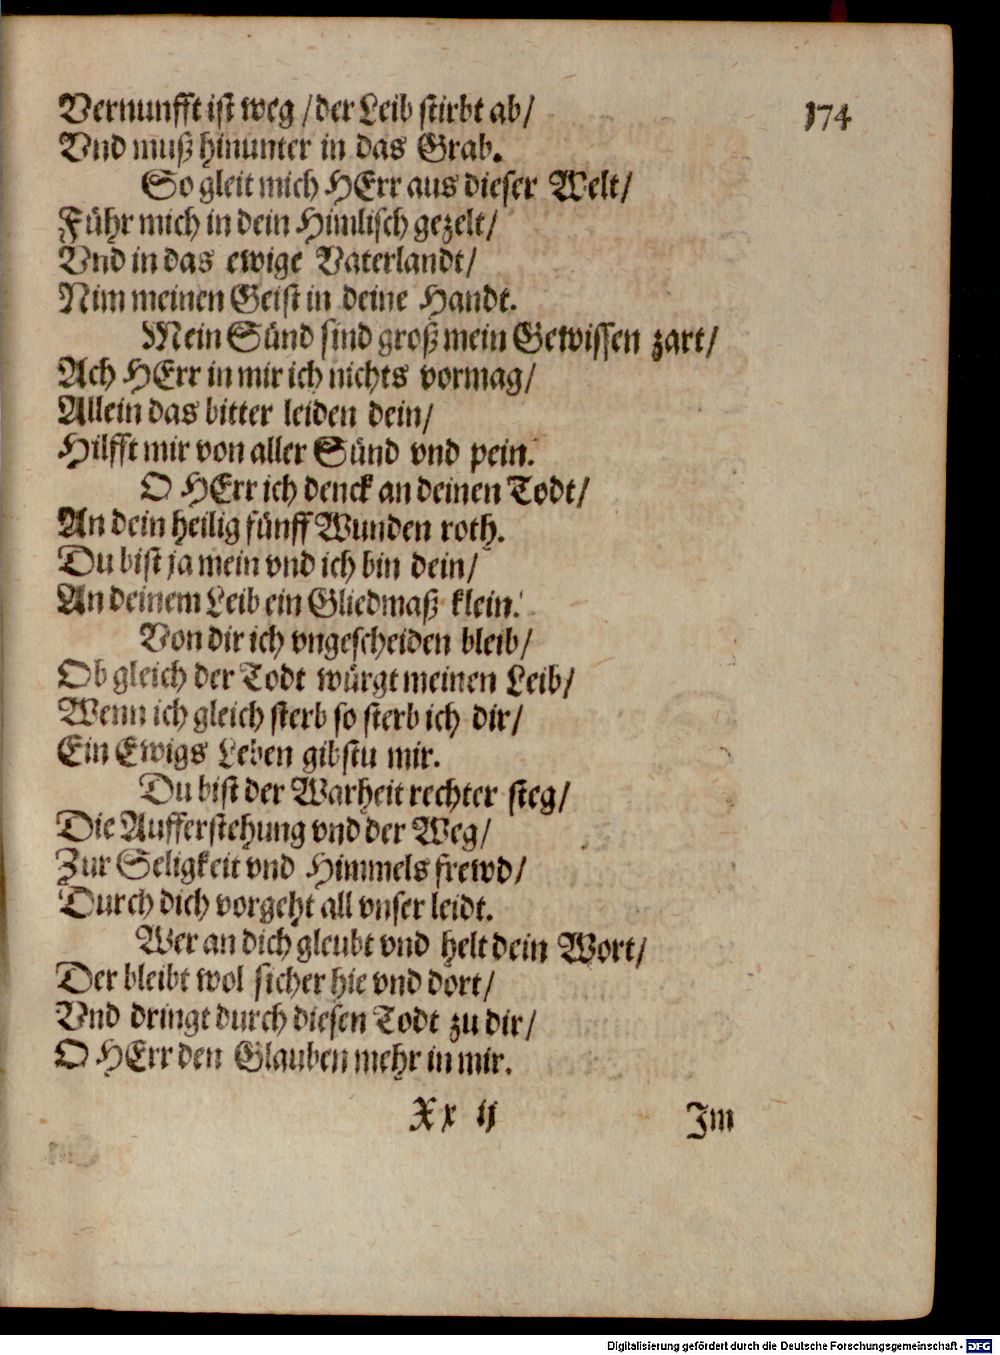 Vernunfft ist weg / der Leib stirbt ab /
174
Vnd muß hinunter in das Grab.
So gleit mich HErr aus dieser Welt /
Führ mich in dein Himlisch gezelt /
Vnd in das ewige Vaterlandt /
Nim meinen Geist in deine Handt.
Mein Sünd sind groß mein Gewissen zart /
Ach HErr in mir ich nichts vormag /
Allein das bitter leiden dein /
Hilfft mir von aller Sünd vnd pein.
O HErr ich denck an deinen Todt /
An dein heilig fünff Wunden roth.
Du bist ja mein vnd ich bin dein /
An deinem Leib ein Gliedmaß klein.
Von dir ich vngescheiden bleib /
Ob gleich der Todt würgt meinen Leib /
Wenn ich gleich sterb so sterb ich dir /
Ein Ewigs Leben gibstu mir.
Du bist der Warheit rechter steg /
Die Aufferstehung vnd der Weg /
Zur Seligkeit vnd Himmels frewd /
Durch dich vorgeht all vnser leidt.
Wer an dich gleubt vnd helt dein Wort /
Der bleibt wol sicher hie vnd dort /
Vnd dringt durch diesen Todt zu dir /
O HErr den Glauben mehr in mir.
Xx ij
Im
Digitalisierung gefördert durch die Deutsche Forschungsgemeinschaft - DFG